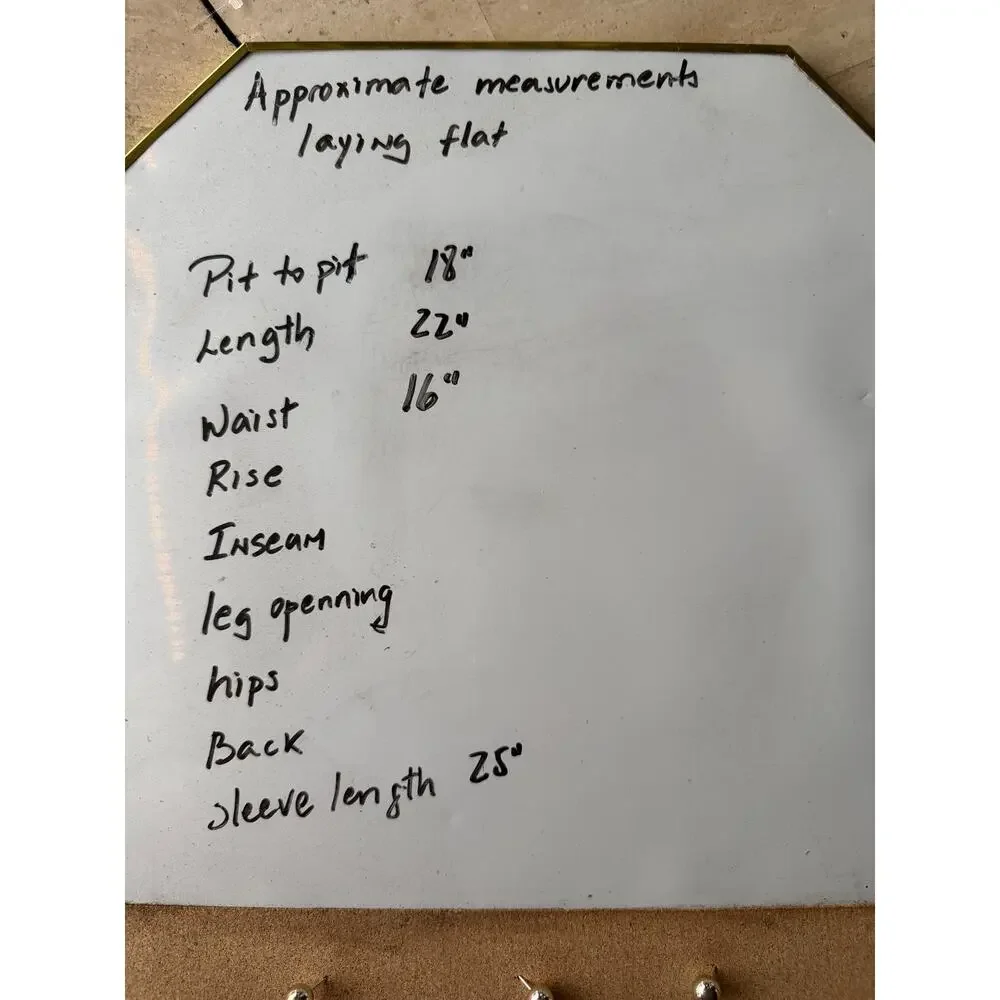 Approximate measurements
laying flat
Pit to pit 18"
Length 22"
Waist 16"
Rise
Inseam
leg openning
hips
Back
sleeve length 25"